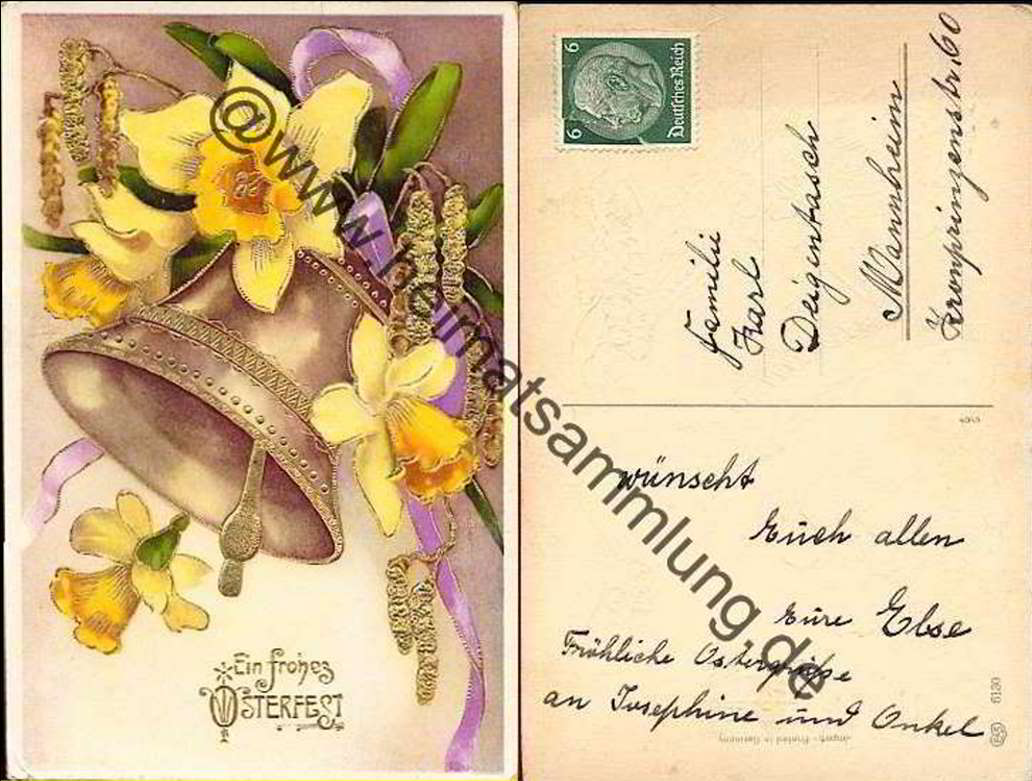 Ein frohes
OSTERFEST
@www.heimatsammlung.de
6
6
Deutsches Reich
Familie
Karl
Deigentasch
Mannheim
Kronprinzenstr. 60
wünscht
Euch allen
Eure Else
Fröhliche Ostergrüße
an Josephine und Onkel
Import - Printed in Germany
6130